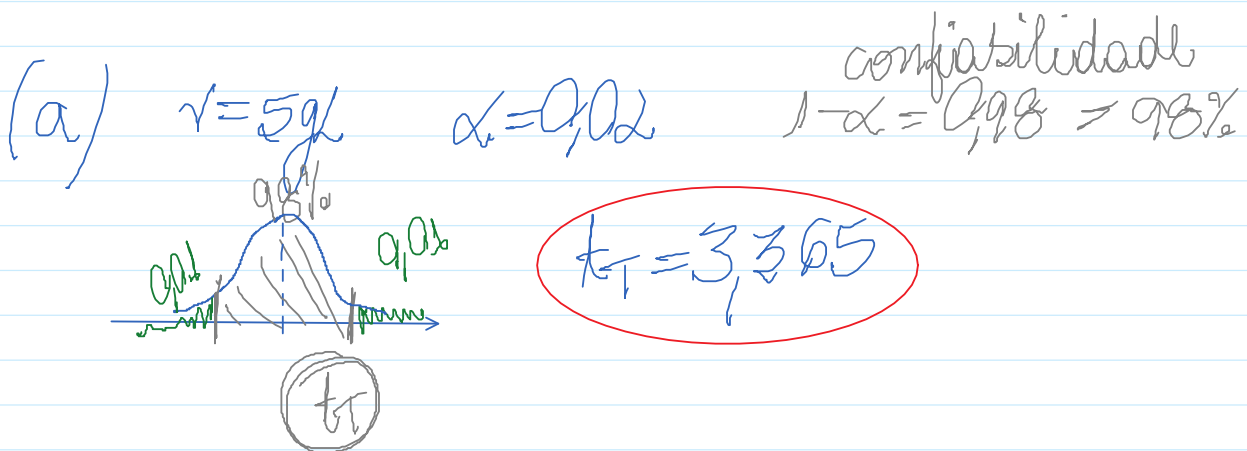 confiabilidade
(a) γ = 5gl α = 0,02 1-α = 0,98 → 98%
98%
0,01 0,01
t_T = 3,365
t_T